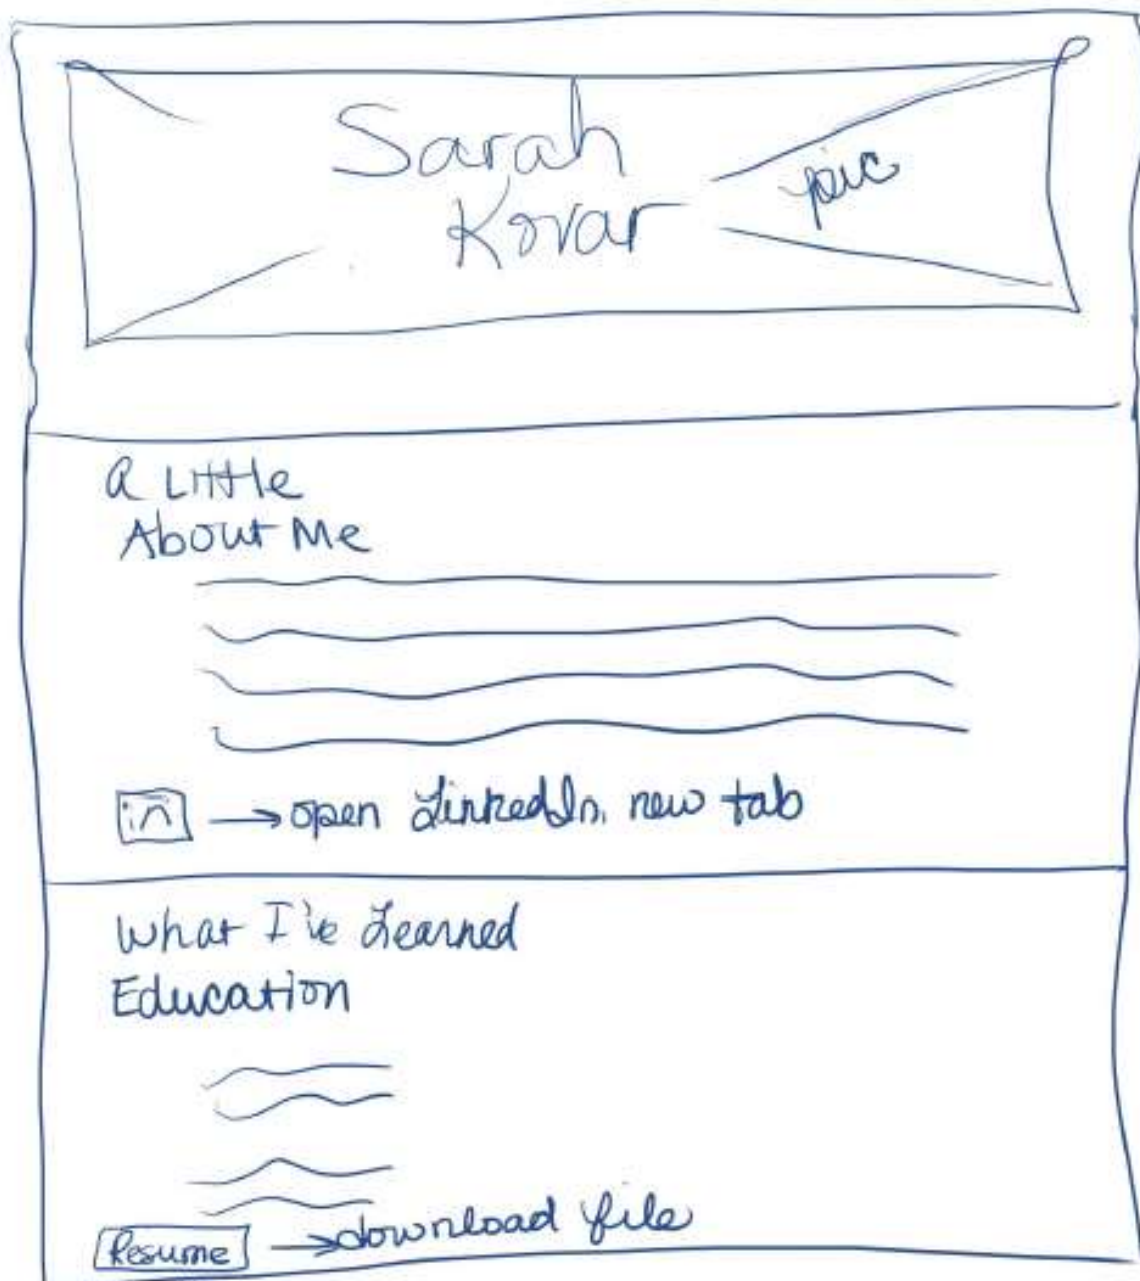 Sarah
Kovar
pic
A Little
About Me
in → open LinkedIn, new tab
What I've Learned
Education
Resume → download file